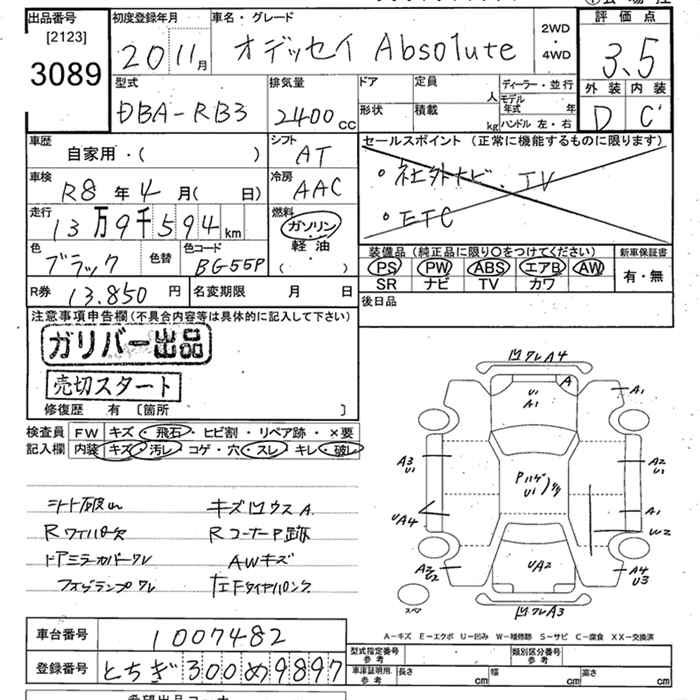 出品番号 初度登録年月 車名・グレード 評価点
[2123] 20 11月 オデッセイ Absolute 2WD・4WD 3.5
3089 型式 排気量 ドア 定員 人 ディーラー・並行 外装 内装
DBA-RB3 2400cc 形状 積載 kg モデル年式 年 ハンドル 左・右 D C'
車歴 シフト セールスポイント (正常に機能するものに限ります)
自家用・( ) AT ・社外ナビ.TV
車検 R8年4月( 日) 冷房 AAC ・ETC
走行 13万9千594km 燃料 ガソリン・軽油・( )
色 ブラック 色替 色コード BG55P
装備品 (純正品に限り○をつけてください) 新車保証書
PS PW ABS エアB AW 有・無
SR ナビ TV カワ
R券 13.850円 名変期限 月 日 後日品
注意事項申告欄(不具合内容等は具体的に記入して下さい)
ガリバー出品
売切スタート
修復歴 有 [箇所 ]
検査員 FW キズ・飛石・ヒビ割・リペア跡・×要
記入欄 内装 キズ・汚レ・コゲ・穴・スレ・キレ・破レ
キズ凹ウスA.
Rワイパー欠 RコーナーP跡
ドアミラーカバーワレ AWキズ
フォグランプワレ
凹ワレA4
A
U1
A1
A1
A3
U1
A2
U1
UA4
A1
W2
UA2
A2
U2
A4
U3
スペア
凹ワレA3
A−キズ E−エクボ U−凹み W−補修跡 S−サビ C−腐食 XX−交換済
車台番号 1007482
登録番号 とちぎ300め9897
型式指定番号 参考 類別区分番号 参考
車庫証明用 参考 長さ cm 幅 cm 高さ cm